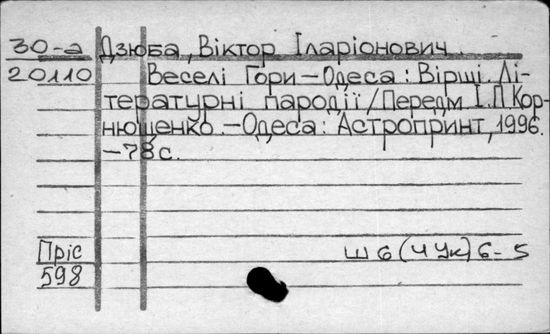 30-а Дзюба, Віктор Іларіонович.
20110 Веселі Гори – Одеса : Вірші. Лі-
тературні пародії / Передм І.П. Кор-
нющенко. – Одеса : Астропринт, 1996.
– 78 с.
Пріс Ш 6 (4 Ук) 6-5
598